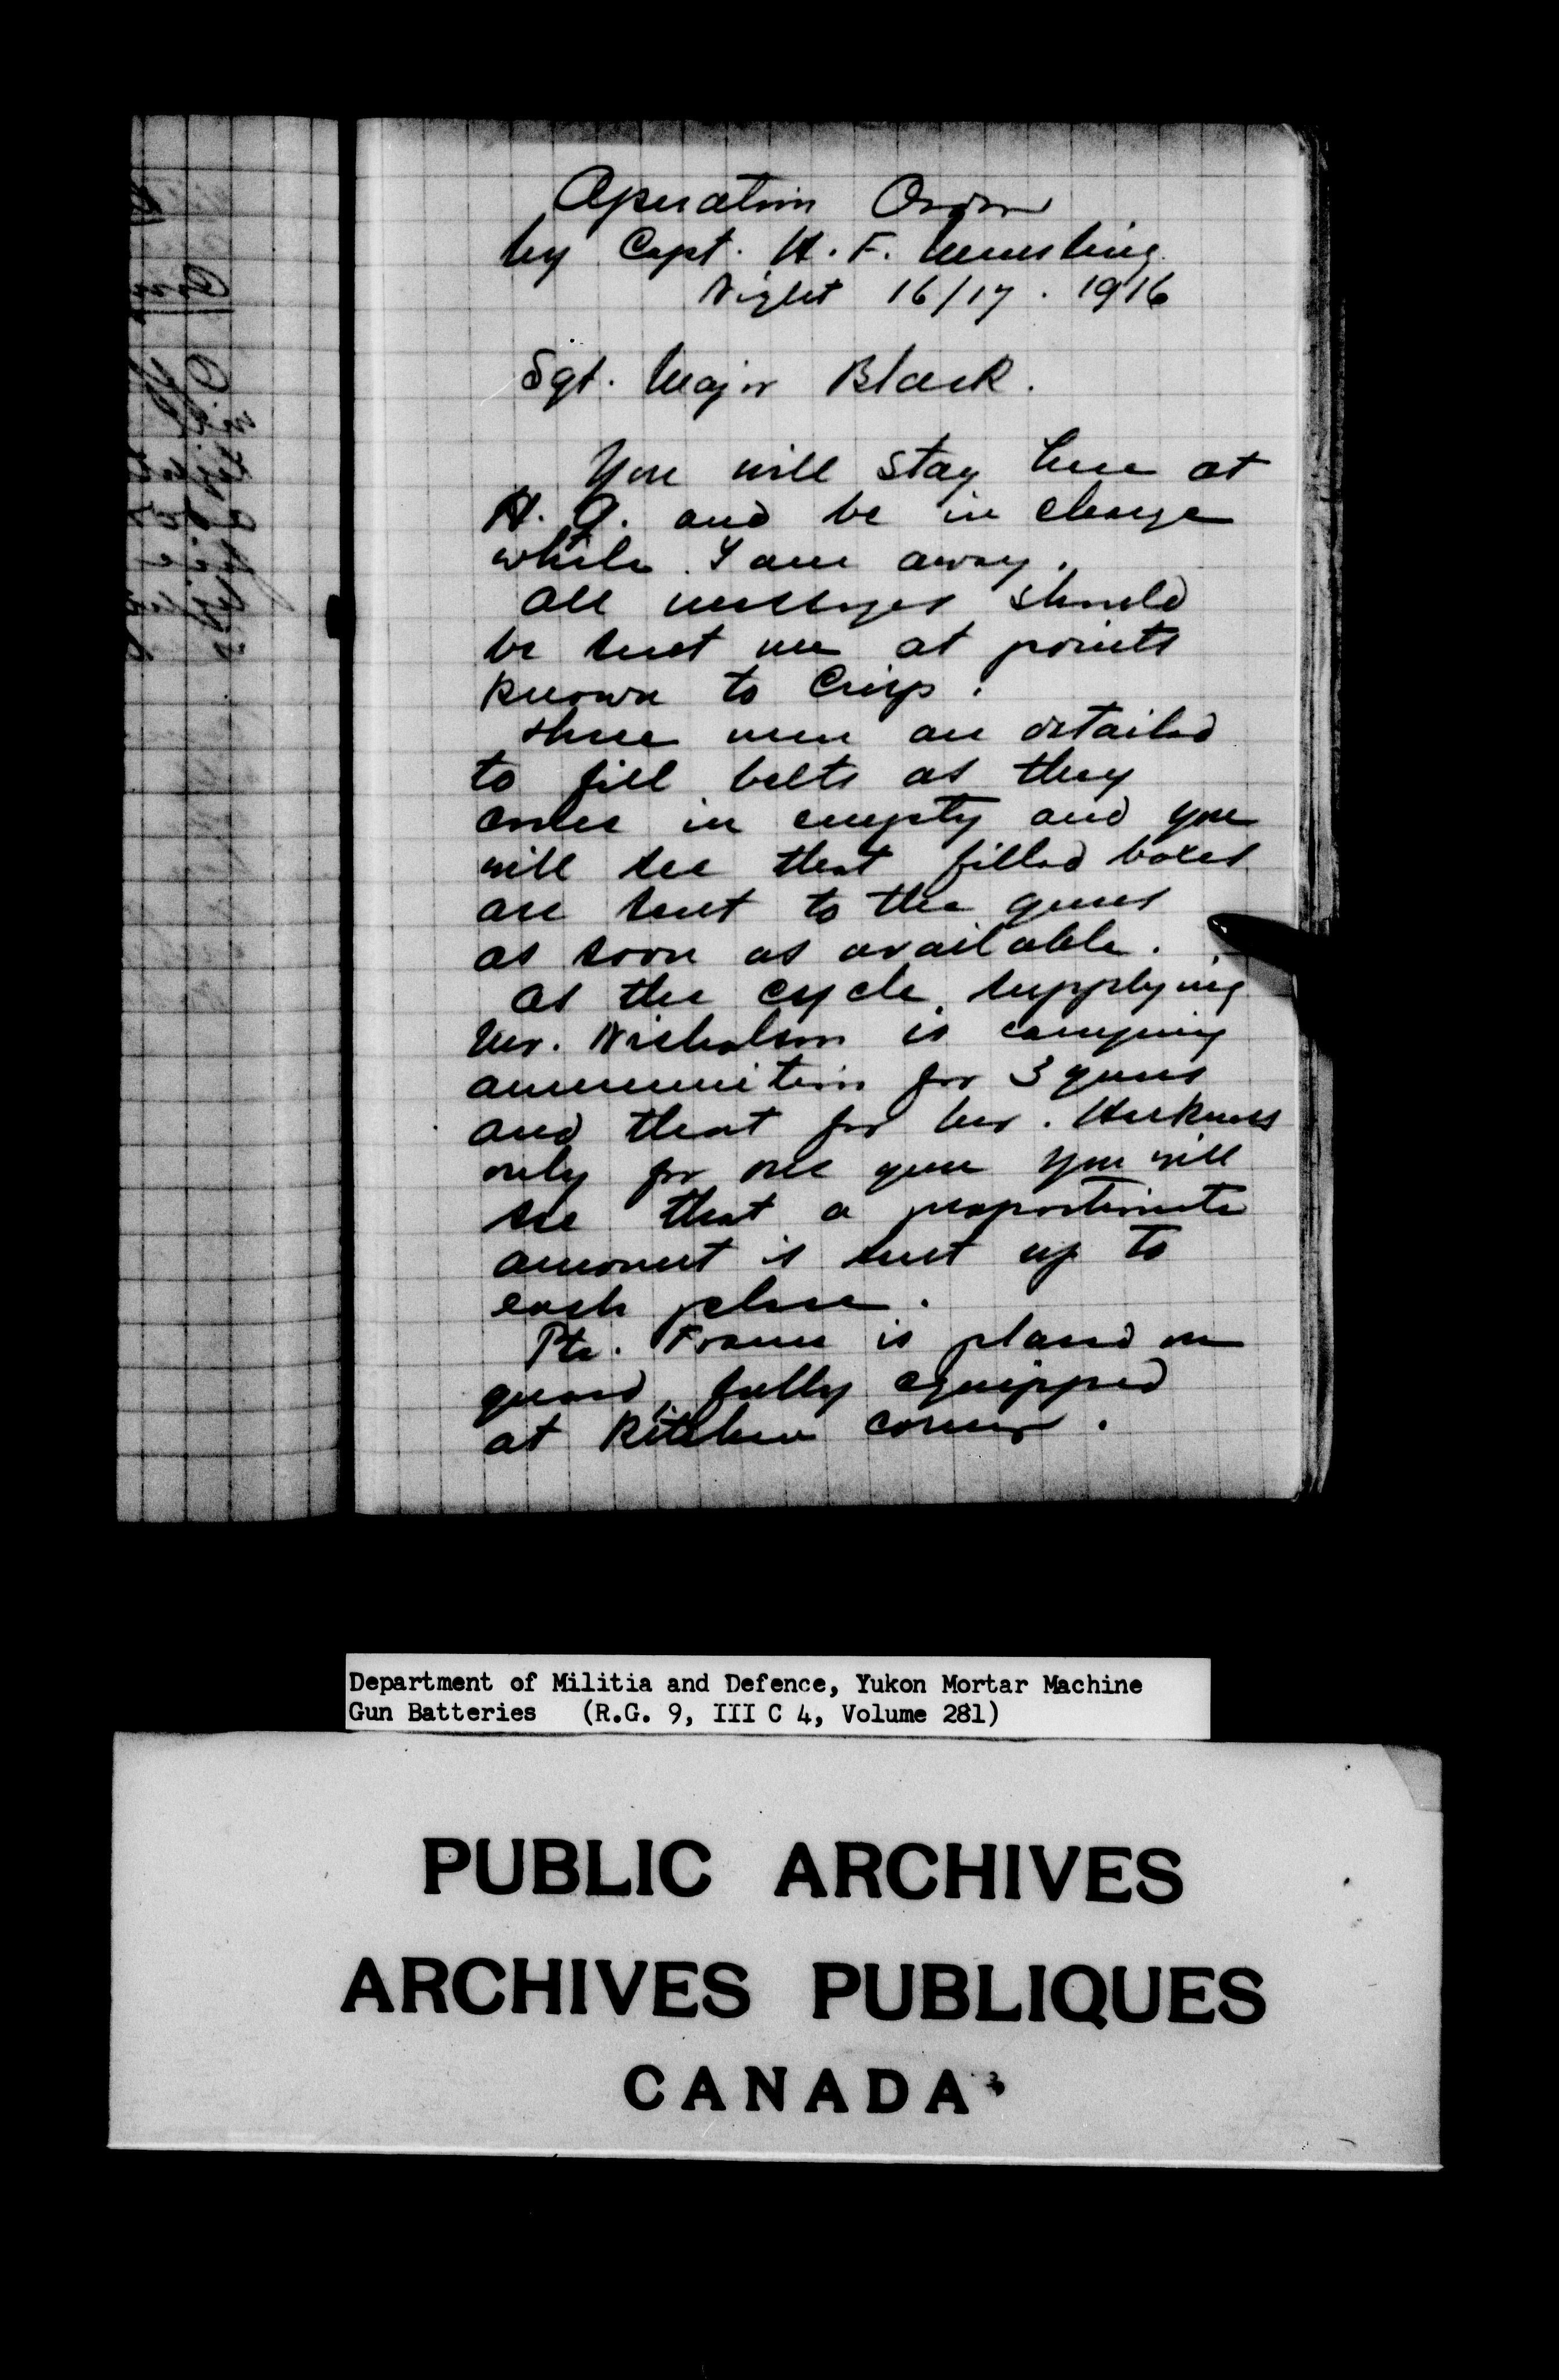 Operation Order
by Capt. H. F. Meurling
Night 16/17 . 1916
Sgt. Major Black.
You will stay here at
H. Q. and be in charge
while I am away.
All messages should
be sent me at points
known to Crisp.
Three men are detailed
to fill belts as they
come in empty and you
will see that filled boxes
are sent to the guns
as soon as available.
As the cycle supplying
Mr. Nicholson is carrying
ammunition for 3 guns
and that for Mr. Harkness
only for one gun you will
see that a proportionate
amount is sent up to
each place.
Pte. is placed on
guard, fully equipped
at Kitchen corner.
Department of Militia and Defence, Yukon Mortar Machine
Gun Batteries (R.G. 9, III C 4, Volume 281)
PUBLIC ARCHIVES
ARCHIVES PUBLIQUES
CANADA